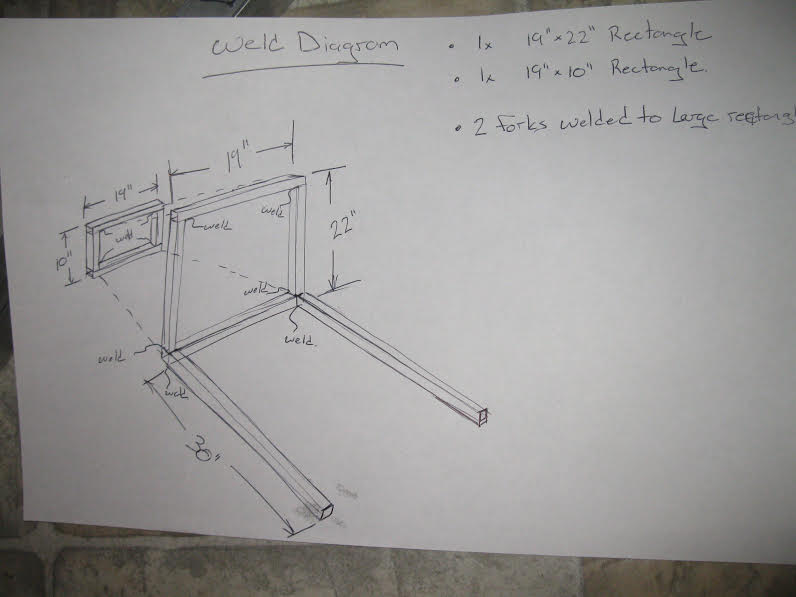 Weld Diagram
• 1x 19"x22" Rectangle
• 1x 19"x10" Rectangle.
• 2 Forks welded to Large rectangl
19"
19"
weld
weld
22"
weld
10"
weld
weld.
weld
weld
30"